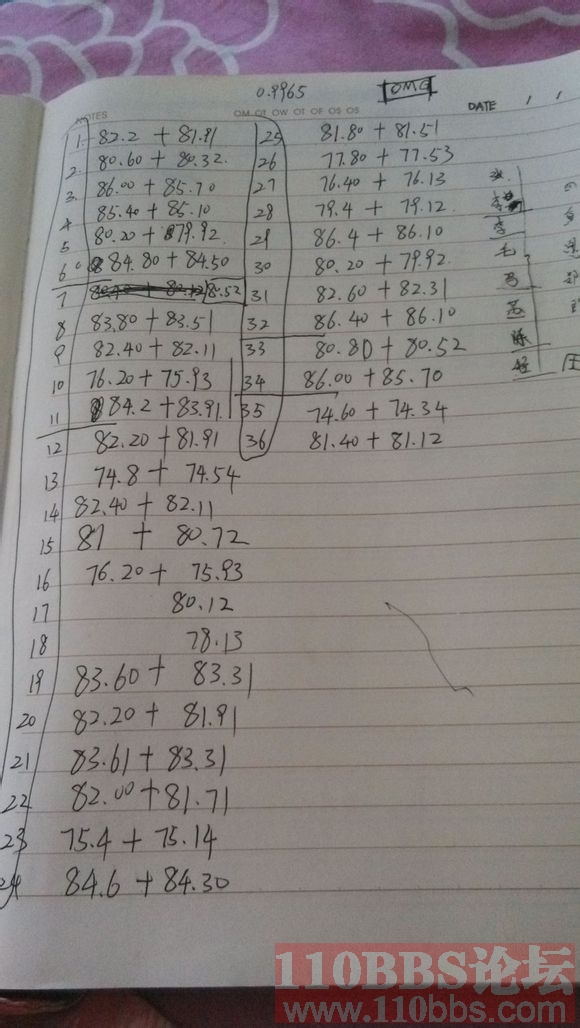 0.9965 OMG
NOTES OM OT OW OT OF OS OS DATE / /
1. 82.2 + 81.91
2. 80.60 + 80.32
3. 86.00 + 85.70
4 85.40 + 85.10
5 80.20 + 79.92
6 84.80 + 84.50
7 80.52
8 83.80 + 83.51
9 82.40 + 82.11
10 76.20 + 75.93
11 84.2 + 83.91
12 82.20 + 81.91
13 74.8 + 74.54
14 82.40 + 82.11
15 81 + 80.72
16 76.20 + 75.93
17 80.12
18 78.13
19 83.60 + 83.31
20 82.20 + 81.91
21 83.61 + 83.31
22 82.00 + 81.71
23 75.4 + 75.14
24 84.6 + 84.30
25 81.80 + 81.51
26 77.80 + 77.53
27 76.40 + 76.13
28 79.4 + 79.12
29 86.4 + 86.10
30 80.20 + 79.92
31 82.60 + 82.31
32 86.40 + 86.10
33 80.80 + 80.52
34 86.00 + 85.70
35 74.60 + 74.34
36 81.40 + 81.12
李
毛
马
陈
110BBS论坛
www.110bbs.com